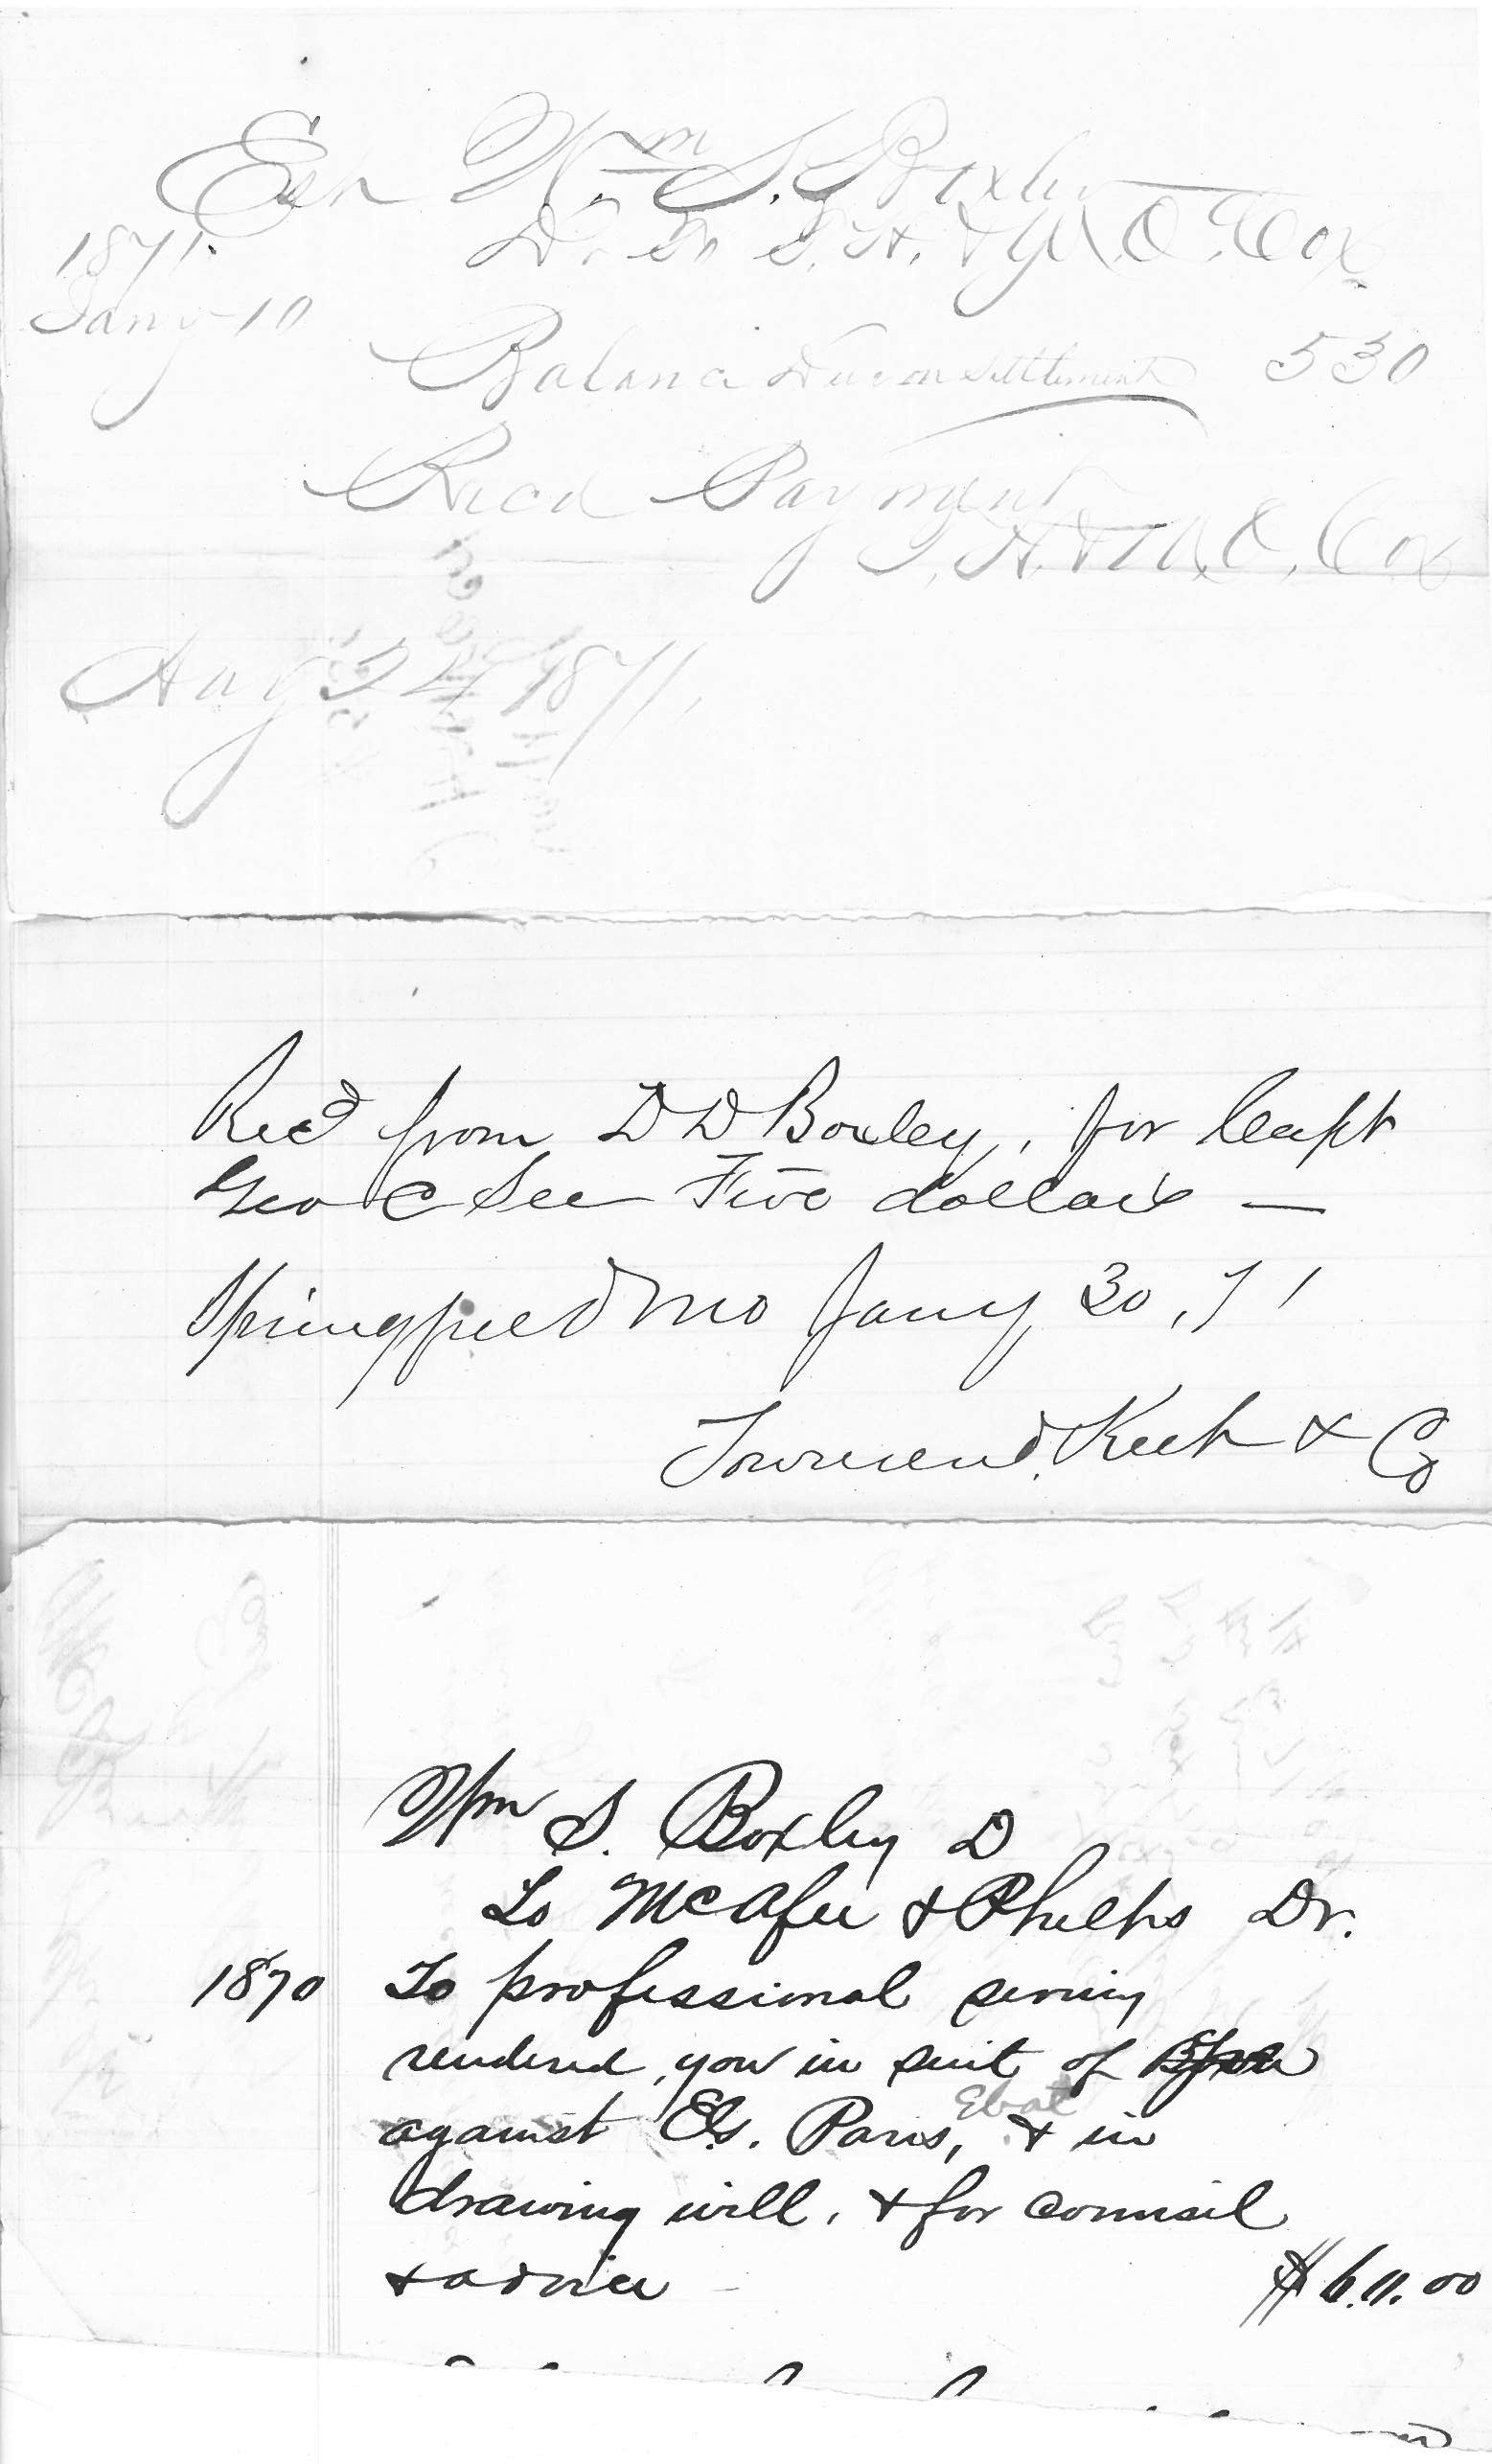 Est Wm. S. Boxley
1871. Dr. To T. H. & M. O. Cox
Jany 10
Balanc Due on Settlement 530
Recd Payment
T. H. & M. O. Cox
Aug 24 1871,
Recd from D D Boxley, for Capt
Geo C See Five dollars —
Springfield Mo Jany 30, 71
Townsend, Keet & Co
Wm S. Boxley D
To McAfee & Phelps Dr.
1870 To professional
rendered you in suit of
Et al
against Paris, & in
drawing will, & for counsil
& advice